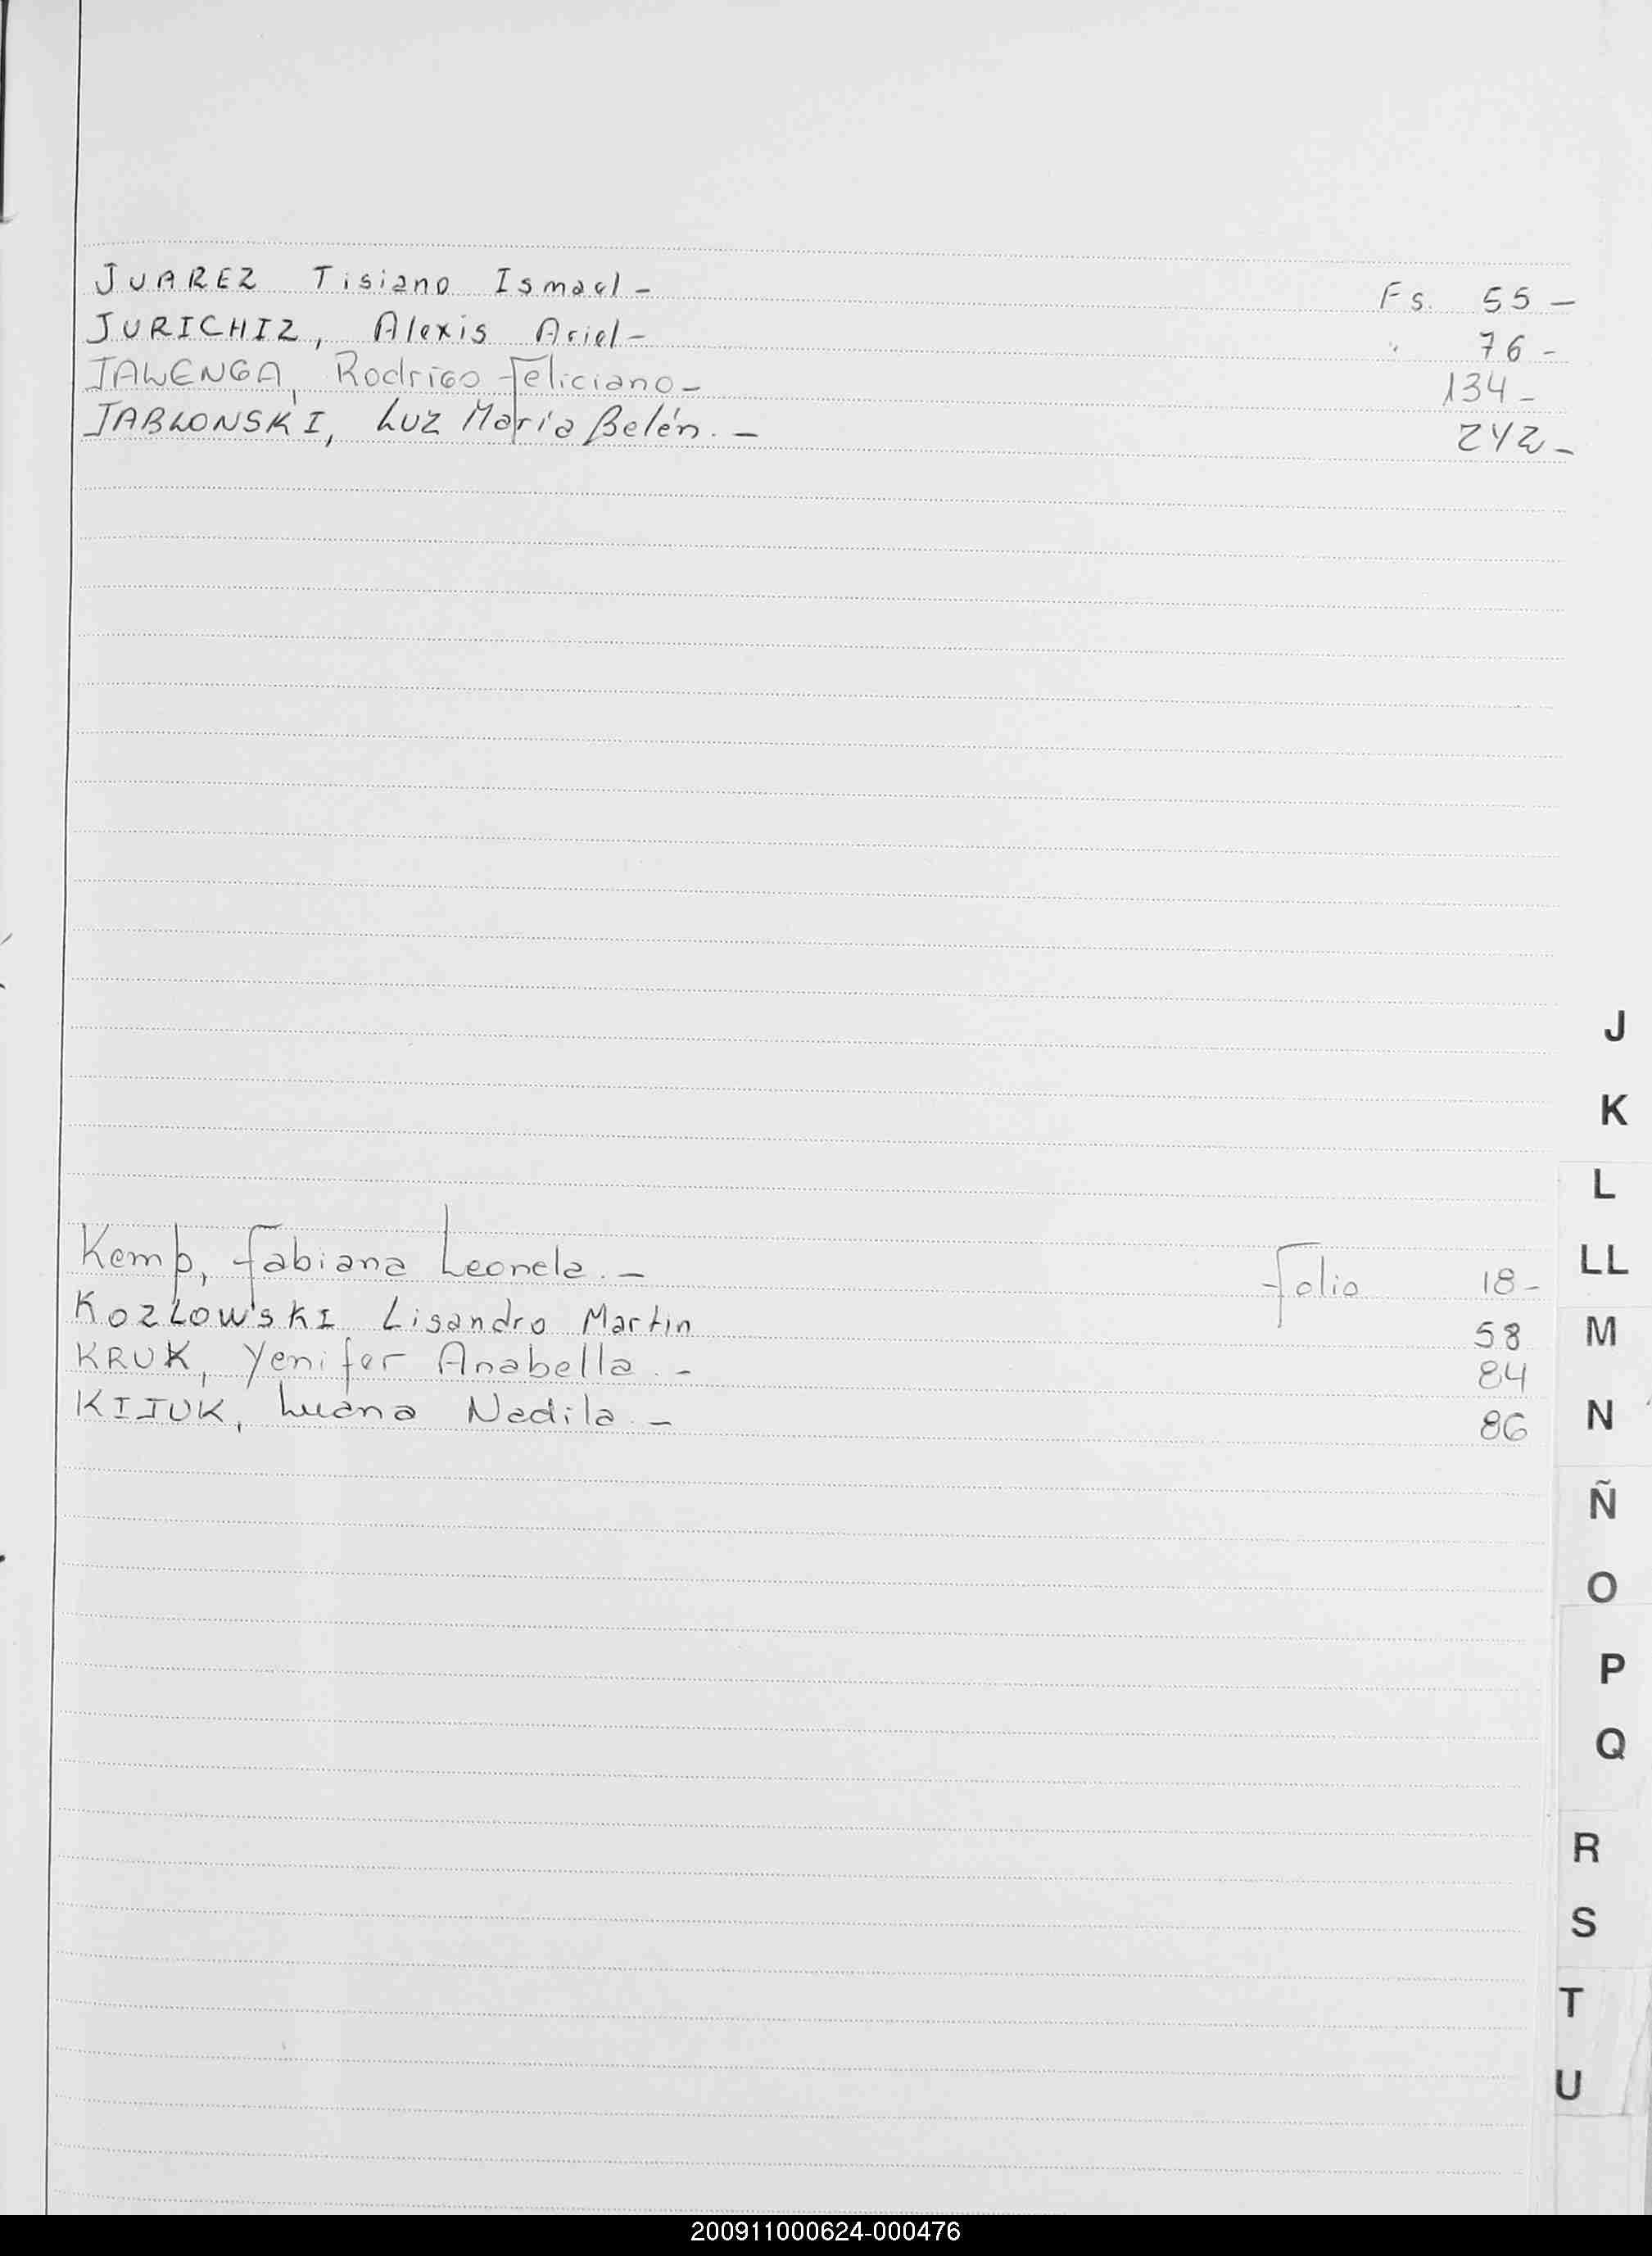 JUAREZ Tisiano Ismael - Fs. 55 -
JURICHIZ, Alexis Ariel - " 76 -
JAWENGA, Rodrigo Feliciano - 134 -
JABLONSKI, Luz María Belén. - 242 -
J
K
L
LL
Kemp, Fabiana Leonela. - Folio 18 -
KOZLOWSKI Lisandro Martin 58
M
KRUK, Yenifer Anabella. - 84
KIJUK, Luana Nadila. - 86
N
Ñ
O
P
Q
R
S
T
U
200911000624-000476